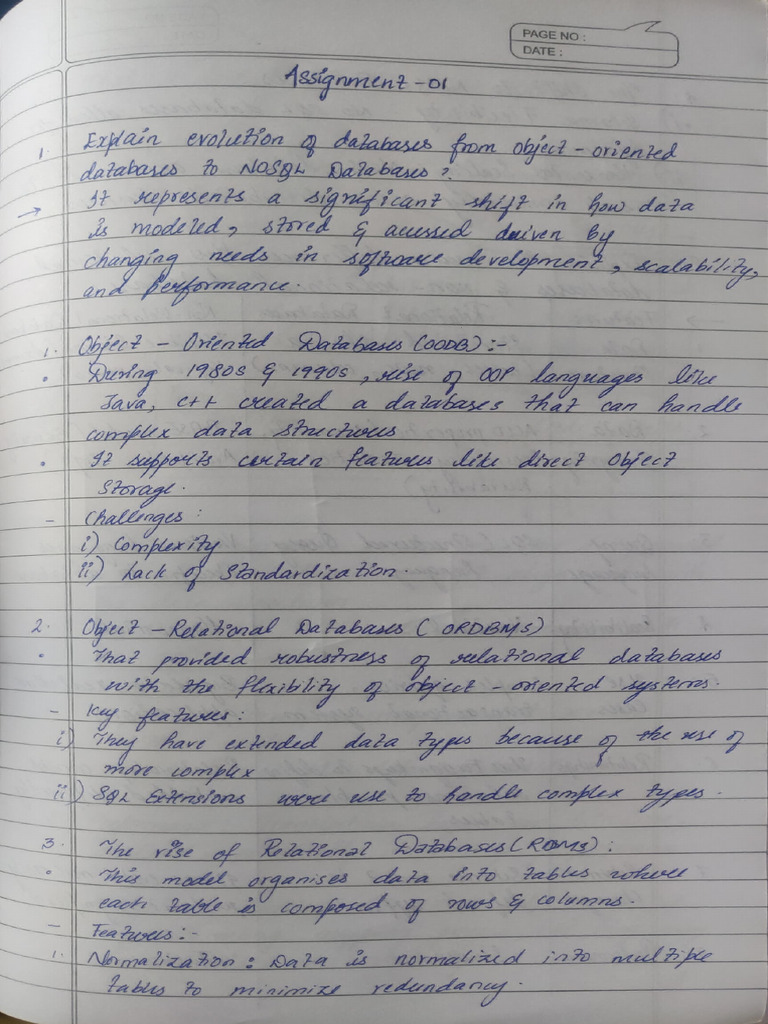 PAGE NO :
DATE :
Assignment - 01
1. Explain evolution of databases from object - oriented
databases to NOSQL Databases?
→ It represents a significant shift in how data
is modeled, stored & acessed driven by
changing needs in software development, scalability,
and performance.
1. Object - Oriented Databases (OODB) :-
• During 1980s & 1990s, rise of OOP languages like
Java, C++ created a databases that can handle
complex data structures
• It supports certain features like direct object
storage.
- Challenges :
i) Complexity
ii) Lack of Standardization.
2. Object - Relational Databases ( ORDBMS)
• That provided robustness of relational databases
with the flexibility of object - oriented systems.
- Key features :
i) They have extended data types because of the use of
more complex
ii) SQL Extensions were use to handle complex types.
3. The rise of Relational Databases (RDBMS) :
• This model organises data into tables where
each table is composed of rows & columns.
- Features :-
1. Normalization : Data is normalized into multiple
tables to minimize redundancy.